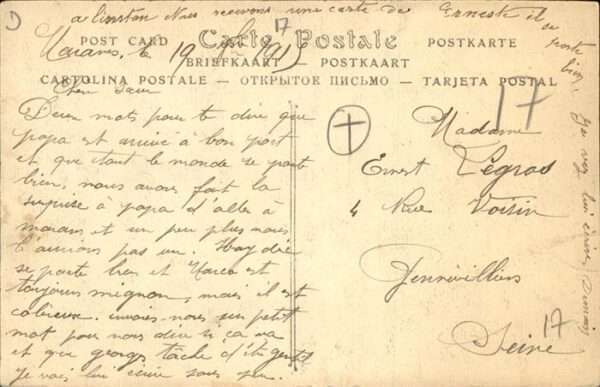 a l'instant Nous recevons une carte de Ernest il se porte bien,
17
POST CARD Carte Postale POSTKARTE
Marans, le 19
BRIEFKAART — POSTKAART
CARTOLINA POSTALE — ОТКРЫТОЕ ПИСЬМО — TARJETA POSTAL
Chère Sœur
Deux mots pour te dire que
papa est arrivé à bon port
et que tout le monde se porte
bien, nous avons fait la
surprise à papa d'aller à
marans et un peu plus nous
l'aurions pas vu. Haydée
se porte bien et Marco est
toujours mignon, mais il est
coléreux. envoies-nous un petit
mot pour nous dire si ça va
et que georges tâche d'être gentil
Je vais lui écrire sous peu.
17
Madame
Ernest Legros
4 Rue Voisin
Gennevilliers
Seine
17
je vais lui écrire Dimanche